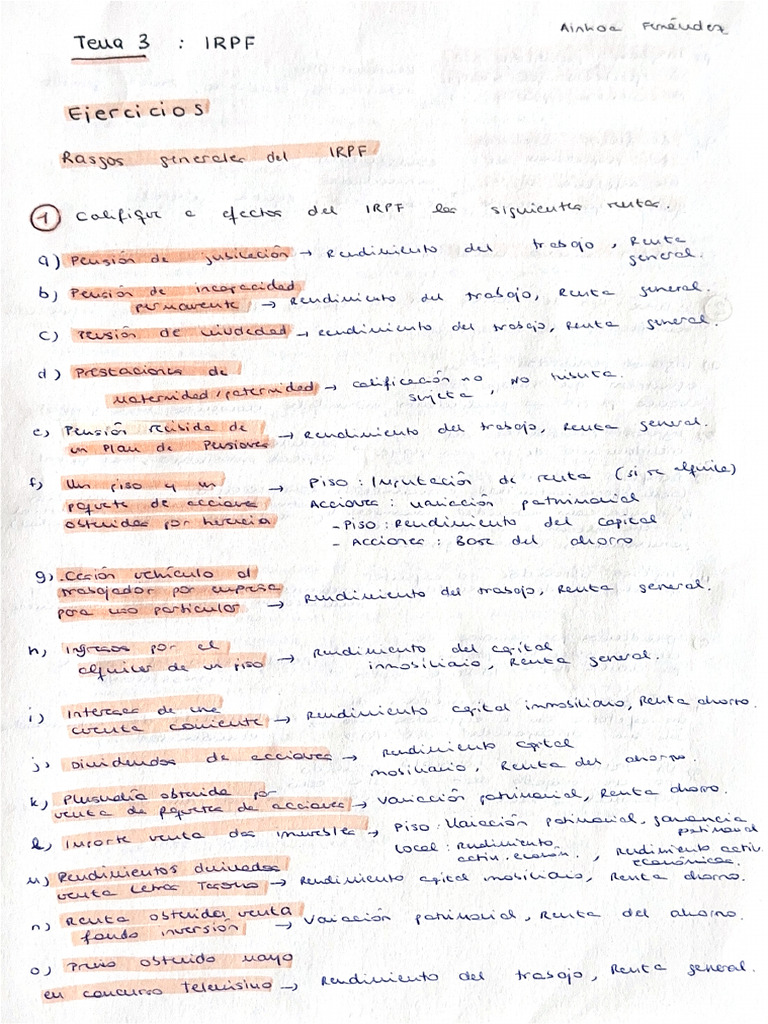 Ainhoa Fernández
Tema 3 : IRPF
Ejercicios
Rasgos generales del IRPF
1 Califique a efectos del IRPF las siguientes rentas.
a) Pensión de jubilación → Rendimiento del trabajo, Renta general.
b) Pensión de incapacidad
permanente → Rendimiento del trabajo, Renta general.
c) Pensión de viudedad → rendimiento del trabajo, Renta general.
d) Prestaciones de
maternidad/paternidad → calificación no sujeta, No tributa.
e) Pensión recibida de
un Plan de Pensiones → Rendimiento del trabajo, Renta general.
f) Un piso y un → Piso : Imputación de renta (si se alquila)
paquete de acciones Acciones : variación patrimonial
obtenidas por herencia - Piso : Rendimiento del capital
- Acciones : Base del ahorro
g) Cesión vehículo al
trabajador por empresa
para uso particular → Rendimiento del trabajo, Renta general.
h) Ingresos por el → Rendimiento del capital
alquiler de un piso inmobiliario, Renta general.
i) Intereses de una
cuenta corriente → Rendimiento capital inmobiliario, Renta ahorro.
j) Dividendos de acciones → Rendimiento capital
mobiliario, Renta del ahorro.
k) Plusvalía obtenida por
venta de paquetes de acciones → Variación patrimonial, Renta ahorro.
l) Importe venta dos inmuebles → Piso : Variación patrimonial, ganancia patrimonial
Local : Rendimiento activ. econón. , Rendimiento activ. económicas.
m) Rendimientos derivados
venta Letras Tesoro → Rendimiento capital mobiliario, Renta ahorro.
n) Renta obtenida venta
fondo inversión → Variación patrimonial, Renta del ahorro.
o) Premio obtenido mayo
en concurso televisivo → Rendimiento del trabajo, Renta general.